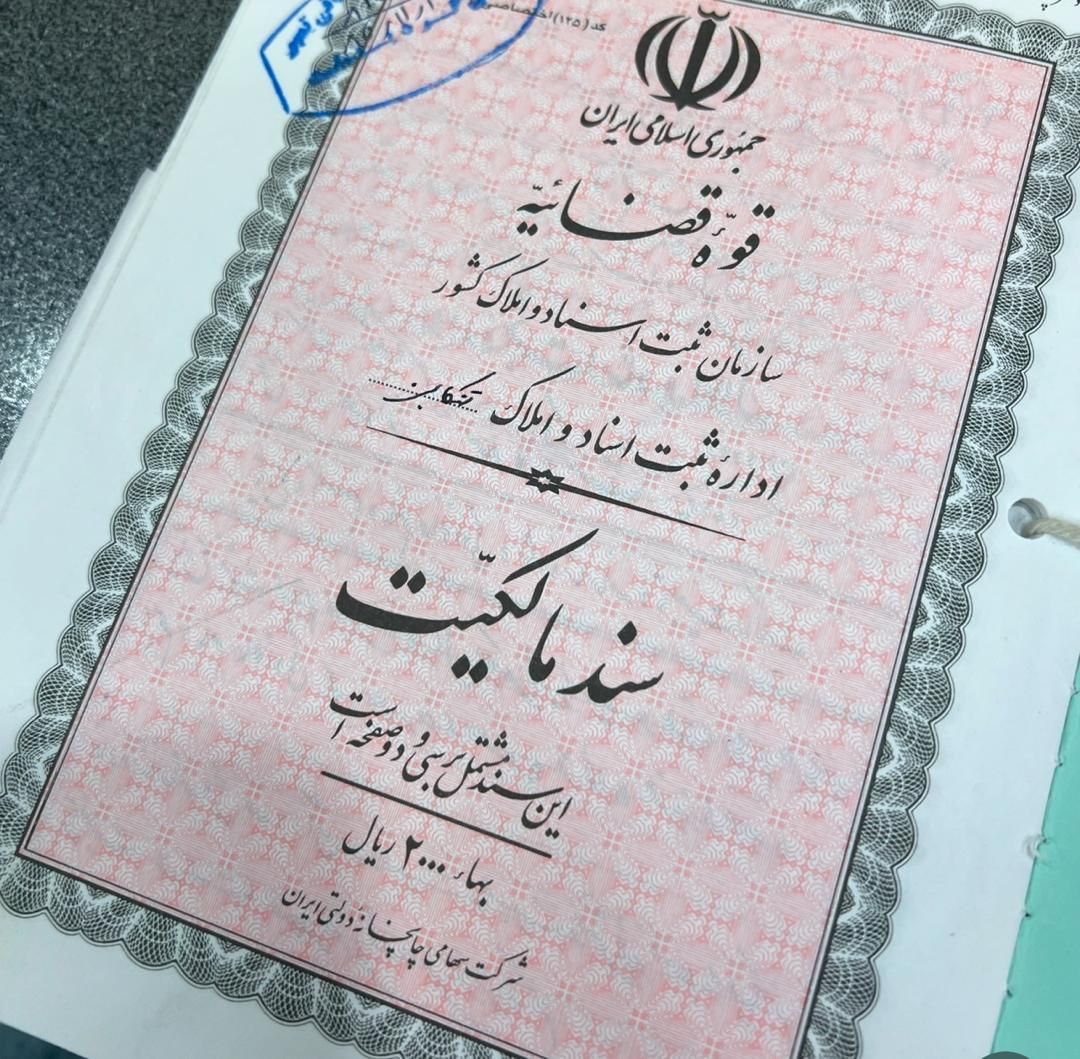 کد (۱۲۵) اختصاصی
جمهوری اسلامی ایران
قوّهٔ قضائیّه
سازمان ثبت اسناد و املاک کشور
ادارهٔ ثبت اسناد و املاک تنکابن
سند مالکیّت
این سند مشتمل بر سی و دو صفحه است
بهاء ۲۰۰۰ ریال
شرکت سهامی چاپخانهٔ دولتی ایران